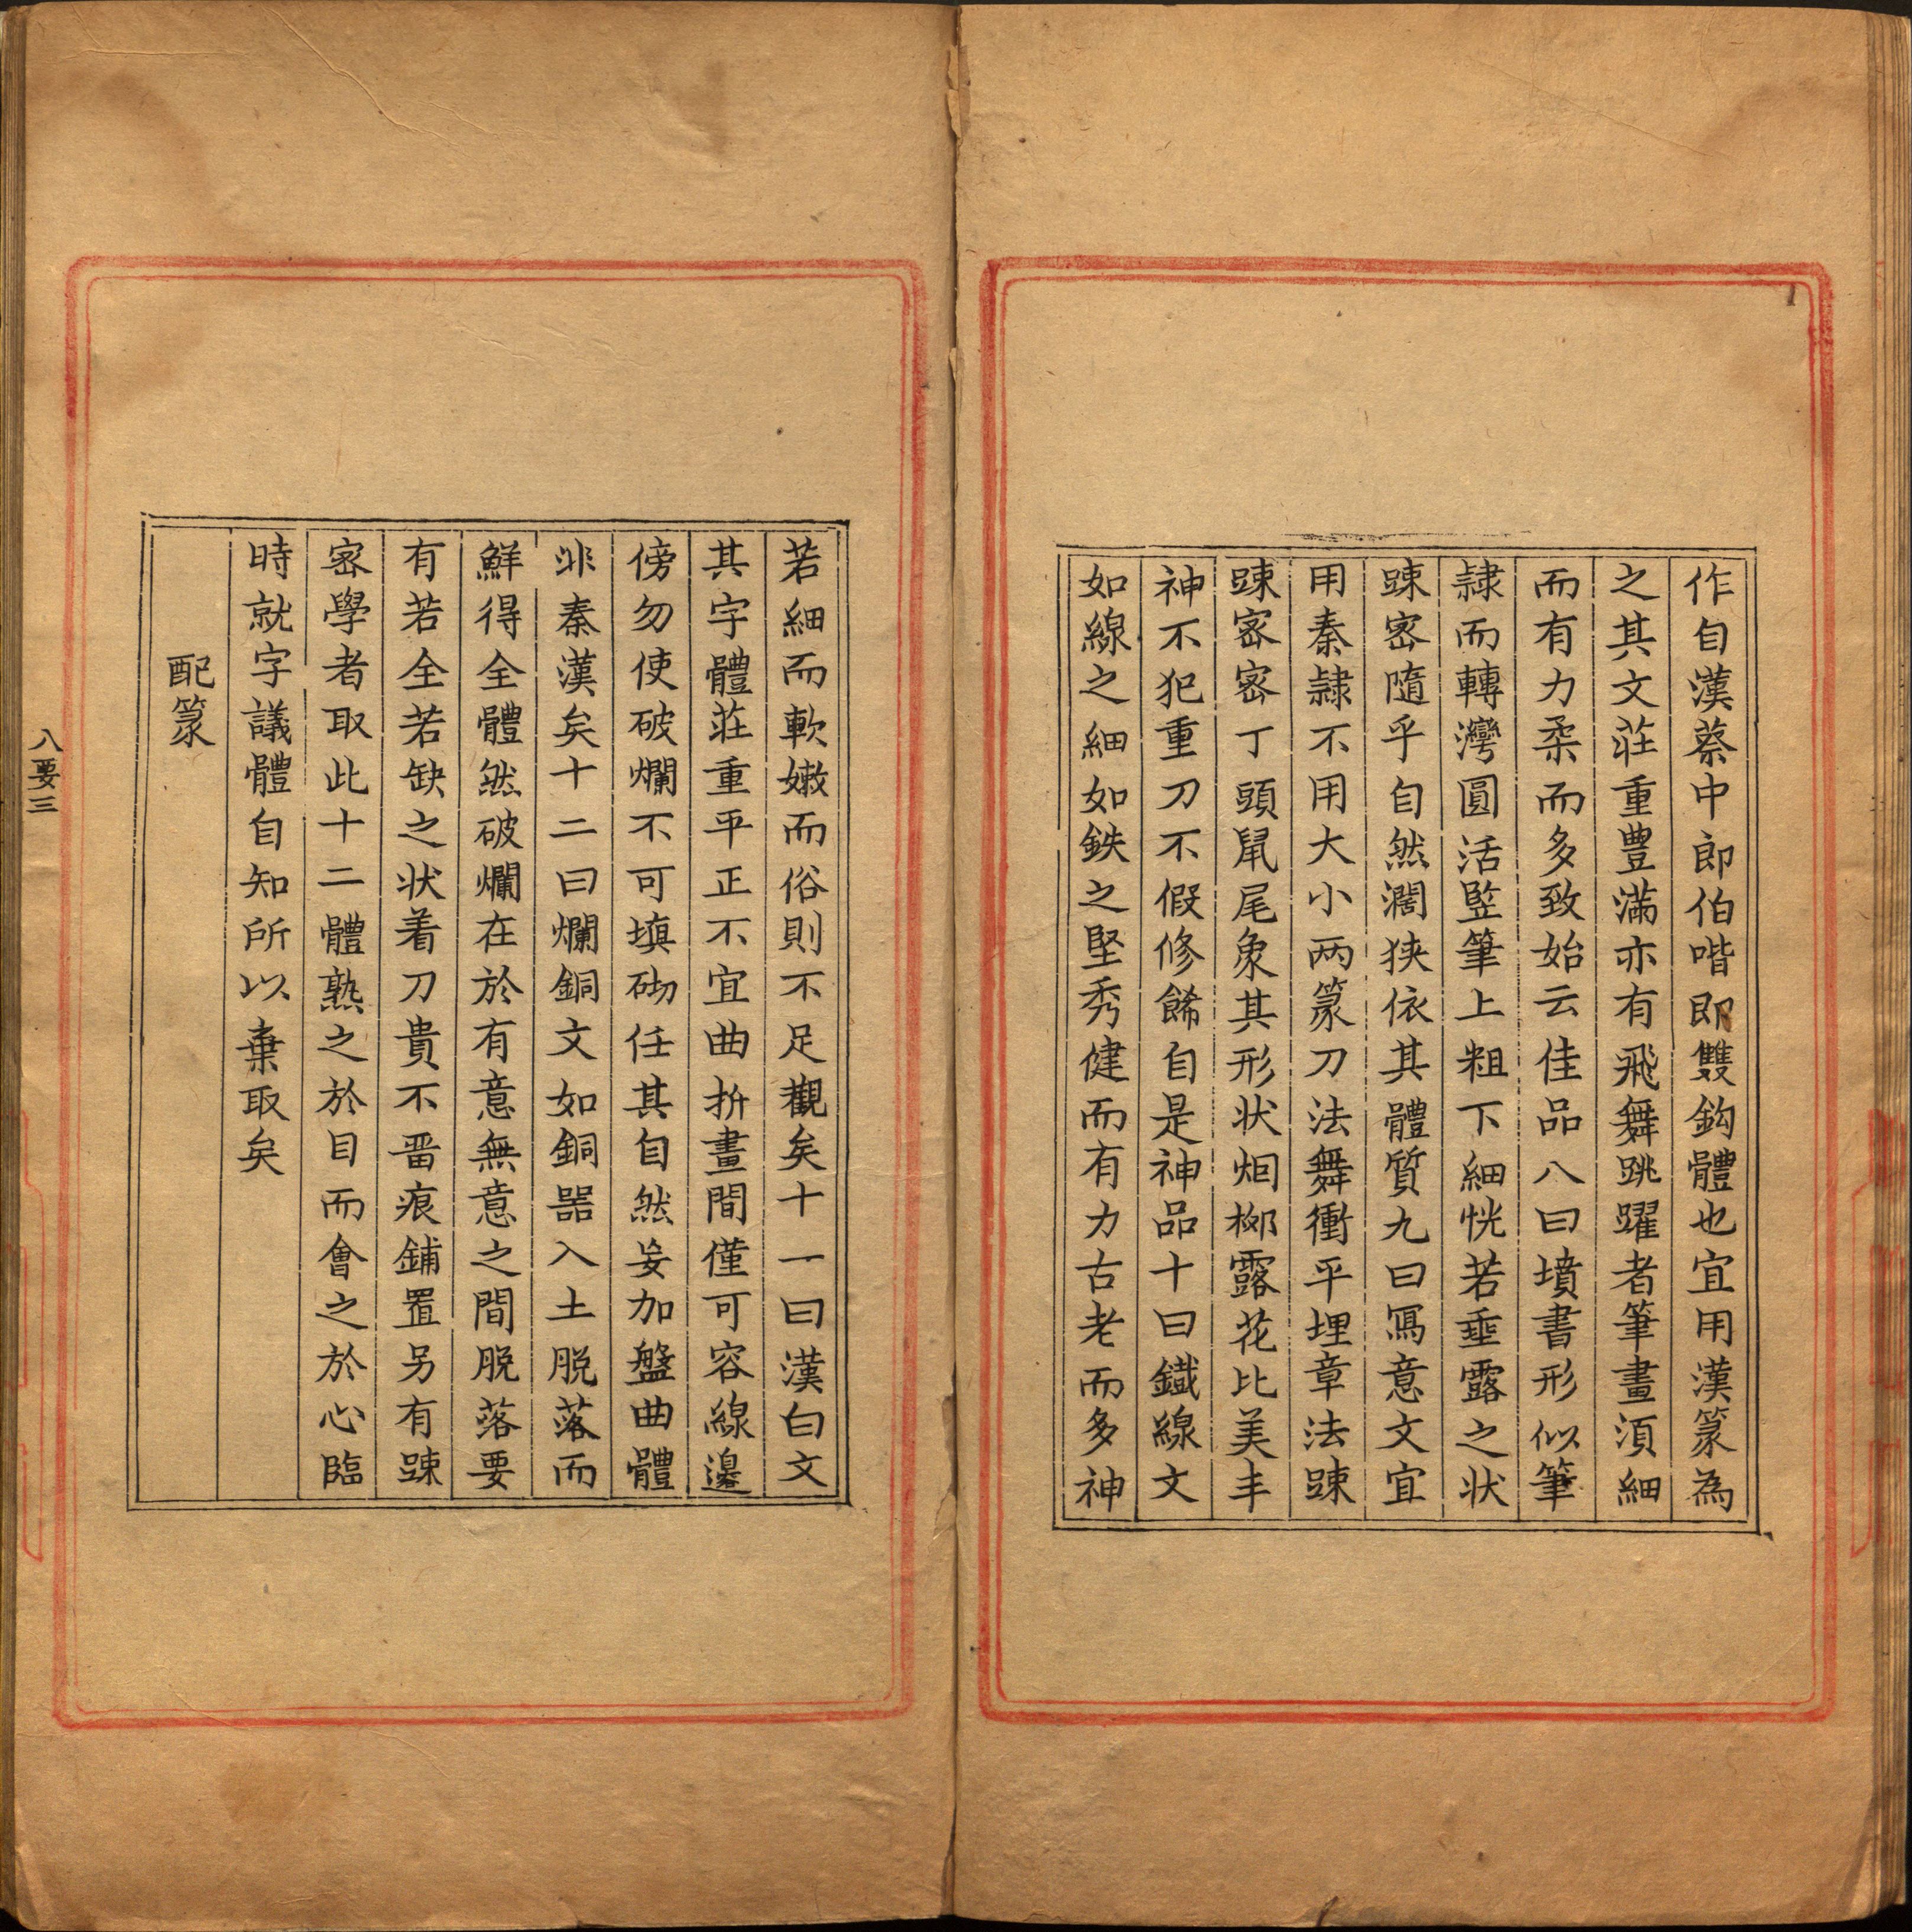 作自漢蔡中郎伯喈即雙鈎體也宜用漢篆為
之其文莊重豊滿亦有飛舞跳躍者筆畫湏細
而有力柔而多致始云佳品八曰墳書形似筆
隷而轉灣圓活竪筆上粗下細恍若垂露之状
踈宻隨乎自然濶狭依其體質九曰寫意文宜
用秦隷不用大小两篆刀法舞衝平埋章法踈
踈宻宻丁頭鼠尾象其形状烟栁露花比美丰
神不犯重刀不假修餙自是神品十曰鐡線文
如線之細如鉄之堅秀健而有力古老而多神
若細而軟嫩而俗則不足觀矣十一曰漢白文
其字體莊重平正不宜曲折畫間僅可容線邊
傍勿使破爛不可填砌任其自然妄加盤曲體
非秦漢矣十二曰爛銅文如銅噐入土脱落而
鮮得全體然破爛在於有意無意之間脱落要
有若全若缺之状着刀貴不畱痕鋪置另有踈
宻學者取此十二體熟之於目而會之於心臨
時就字議體自知所以棄取矣
配篆
八要三